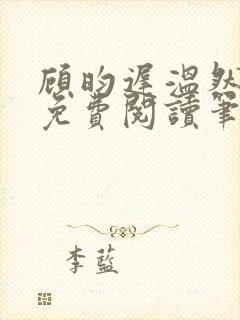 顧昀遲溫然
免費閱讀筆
李藍